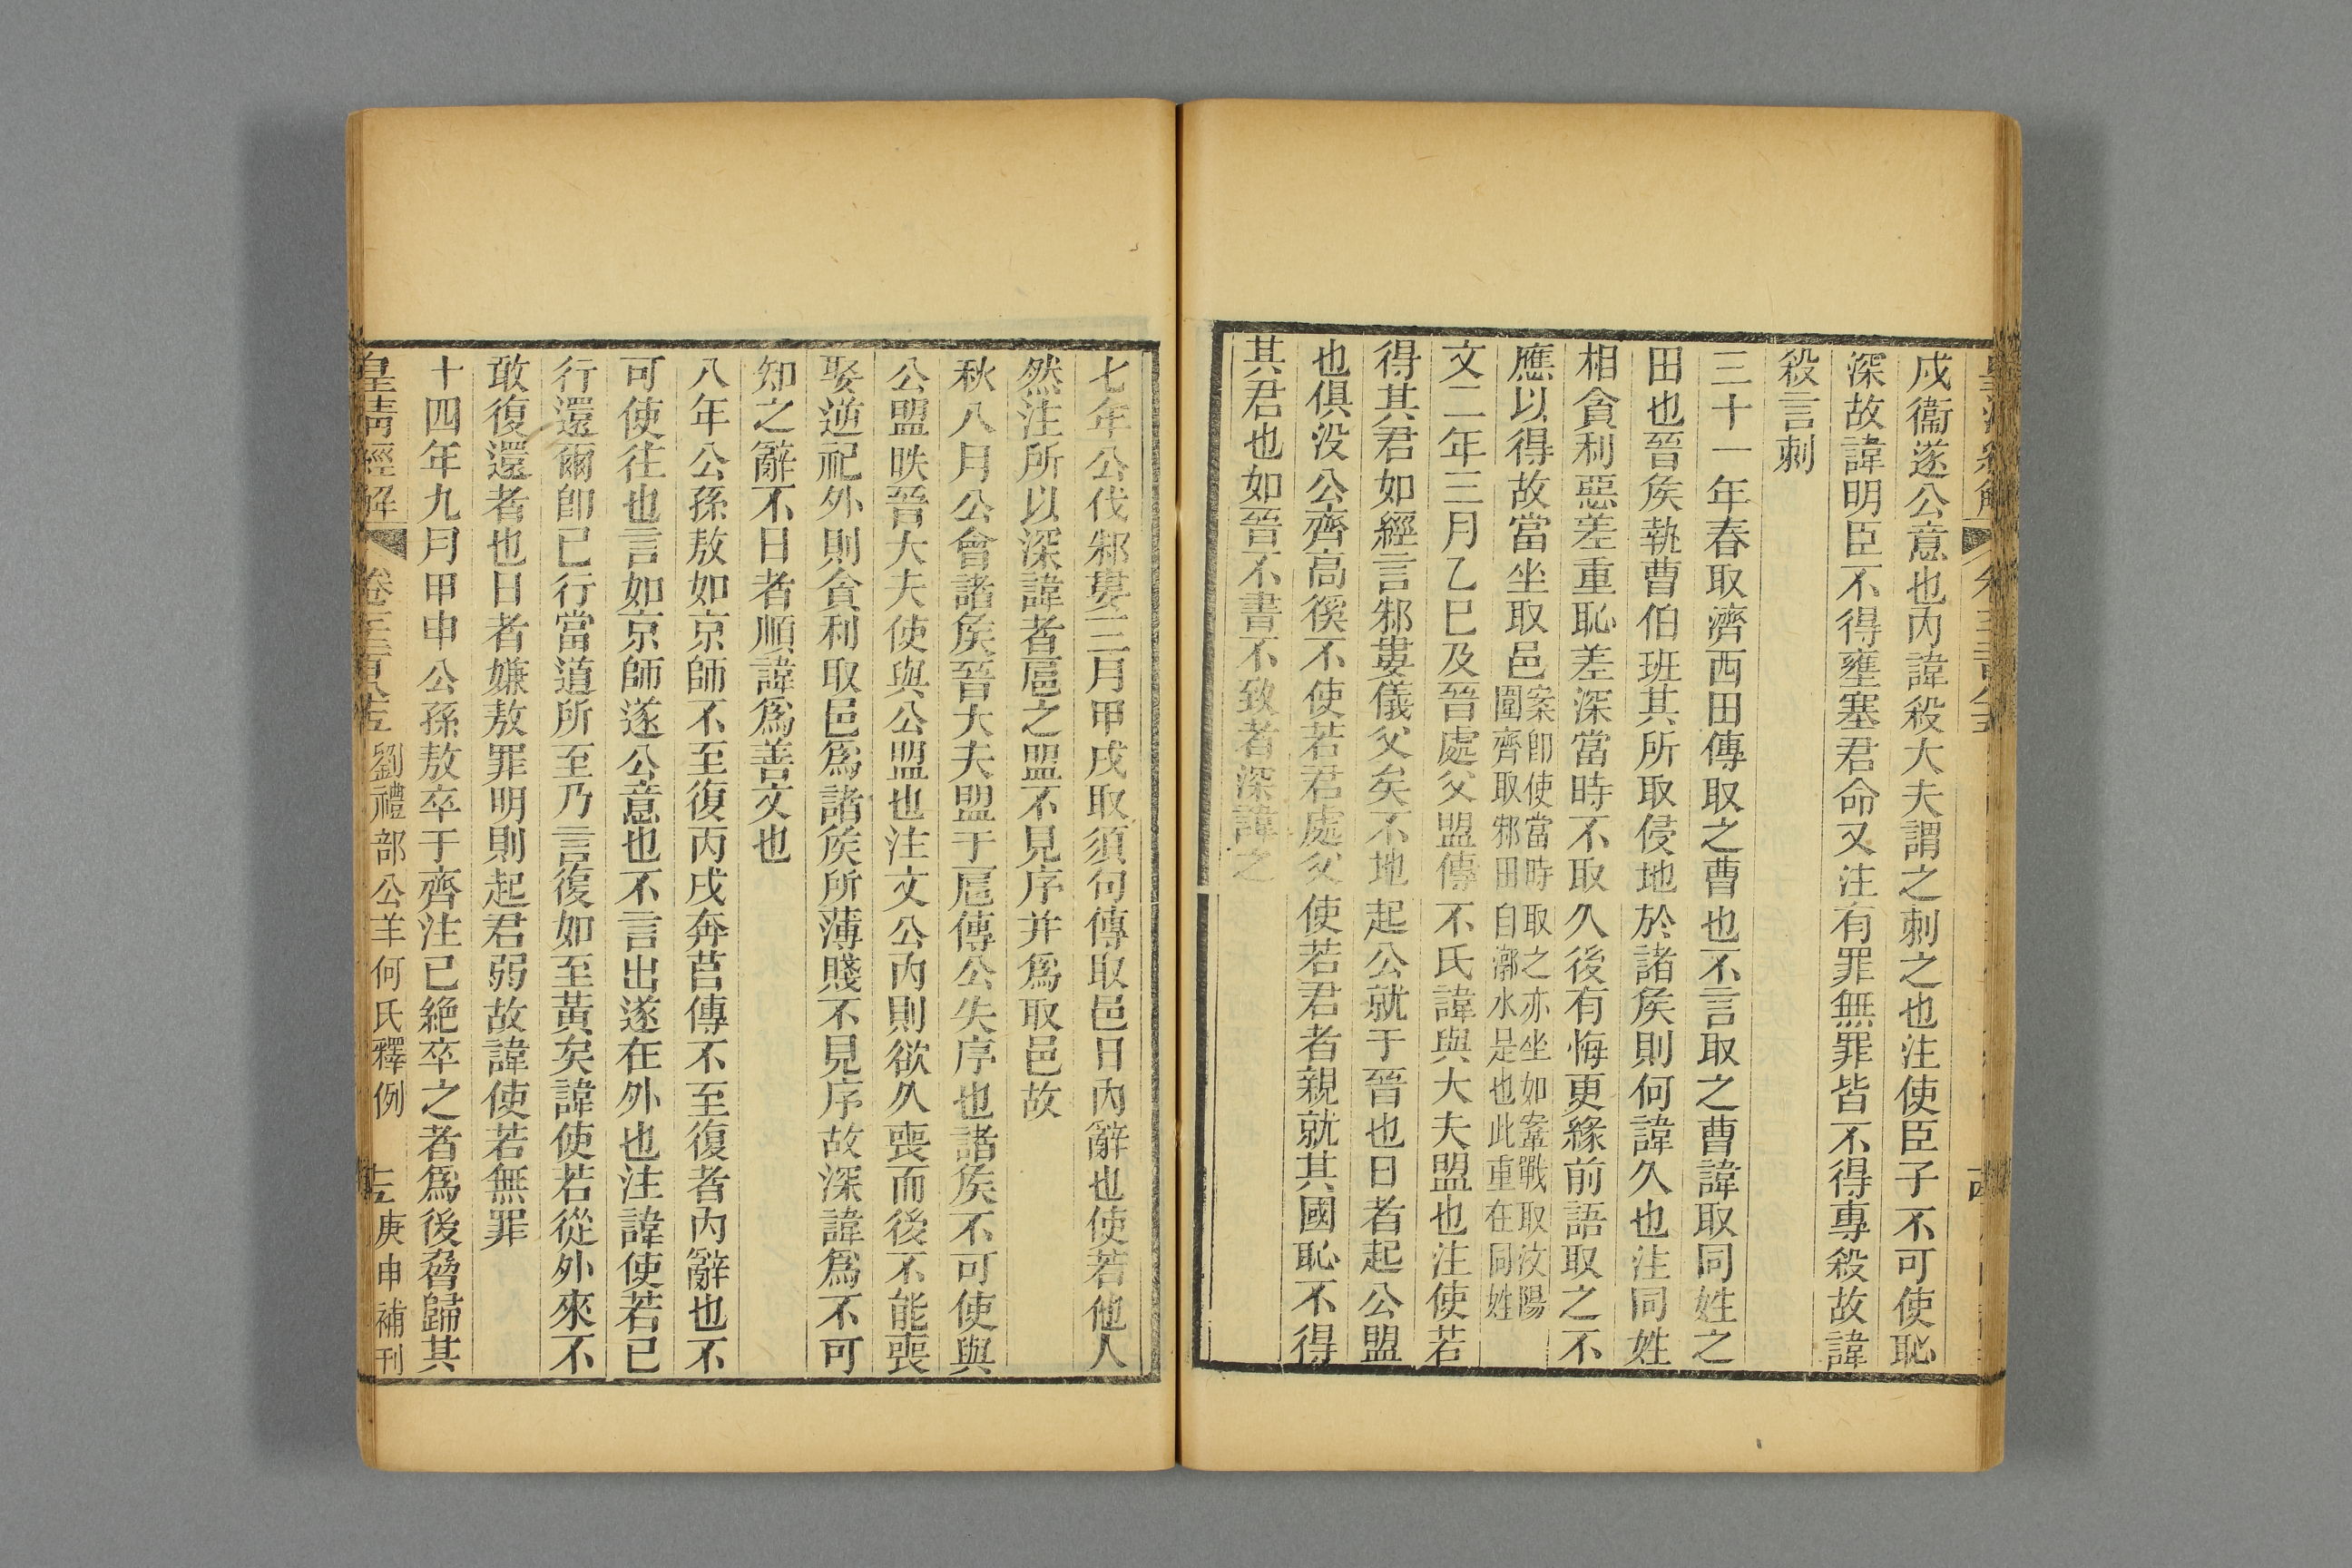 戍衞遂公意也內諱殺大夫謂之刺之也注使臣子不可使恥
深故諱明臣不得壅塞君命又注有罪無罪皆不得專殺故諱
殺言刺
三十一年春取濟西田傳取之曹也不言取之曹諱取同姓之
田也晉矦執曹伯班其所取侵地於諸矦則何諱久也注同姓
相貪利惡差重恥差深當時不取久後有悔更緣前語取之不
應以得故當坐取邑案卽使當時取之亦坐如鞌戰取汶陽
圍齊取邾田自漷水是也此重在同姓
文二年三月乙巳及晉處父盟傳不氏諱與大夫盟也注使若
得其君如經言邾婁儀父矣不地起公就于晉也日者起公盟
也俱没公齊高徯不使若君處父使若君者親就其國恥不得
其君也如晉不書不致者深諱之
七年公伐邾婁三月甲戌取須句傳取邑日內辭也使若他人
然注所以深諱者扈之盟不見序并爲取邑故
秋八月公會諸矦晉大夫盟于扈傳公失序也諸矦不可使與
公盟眣晉大夫使與公盟也注文公內則欲久喪而後不能喪
娶逆祀外則貪利取邑爲諸矦所薄賤不見序故深諱爲不可
知之辭不日者順諱爲善文也
八年公孫敖如京師不至復丙戌奔莒傳不至復者內辭也不
可使往也言如京師遂公意也不言出遂在外也注諱使若已
行還爾卽已行當道所至乃言復如至黃矣諱使若從外來不
敢復還者也日者嫌敖罪明則起君弱故諱使若無罪
十四年九月甲申公孫敖卒于齊注已絶卒之者爲後脅歸其
皇清經解 劉禮部公羊何氏釋例 庚申補刊